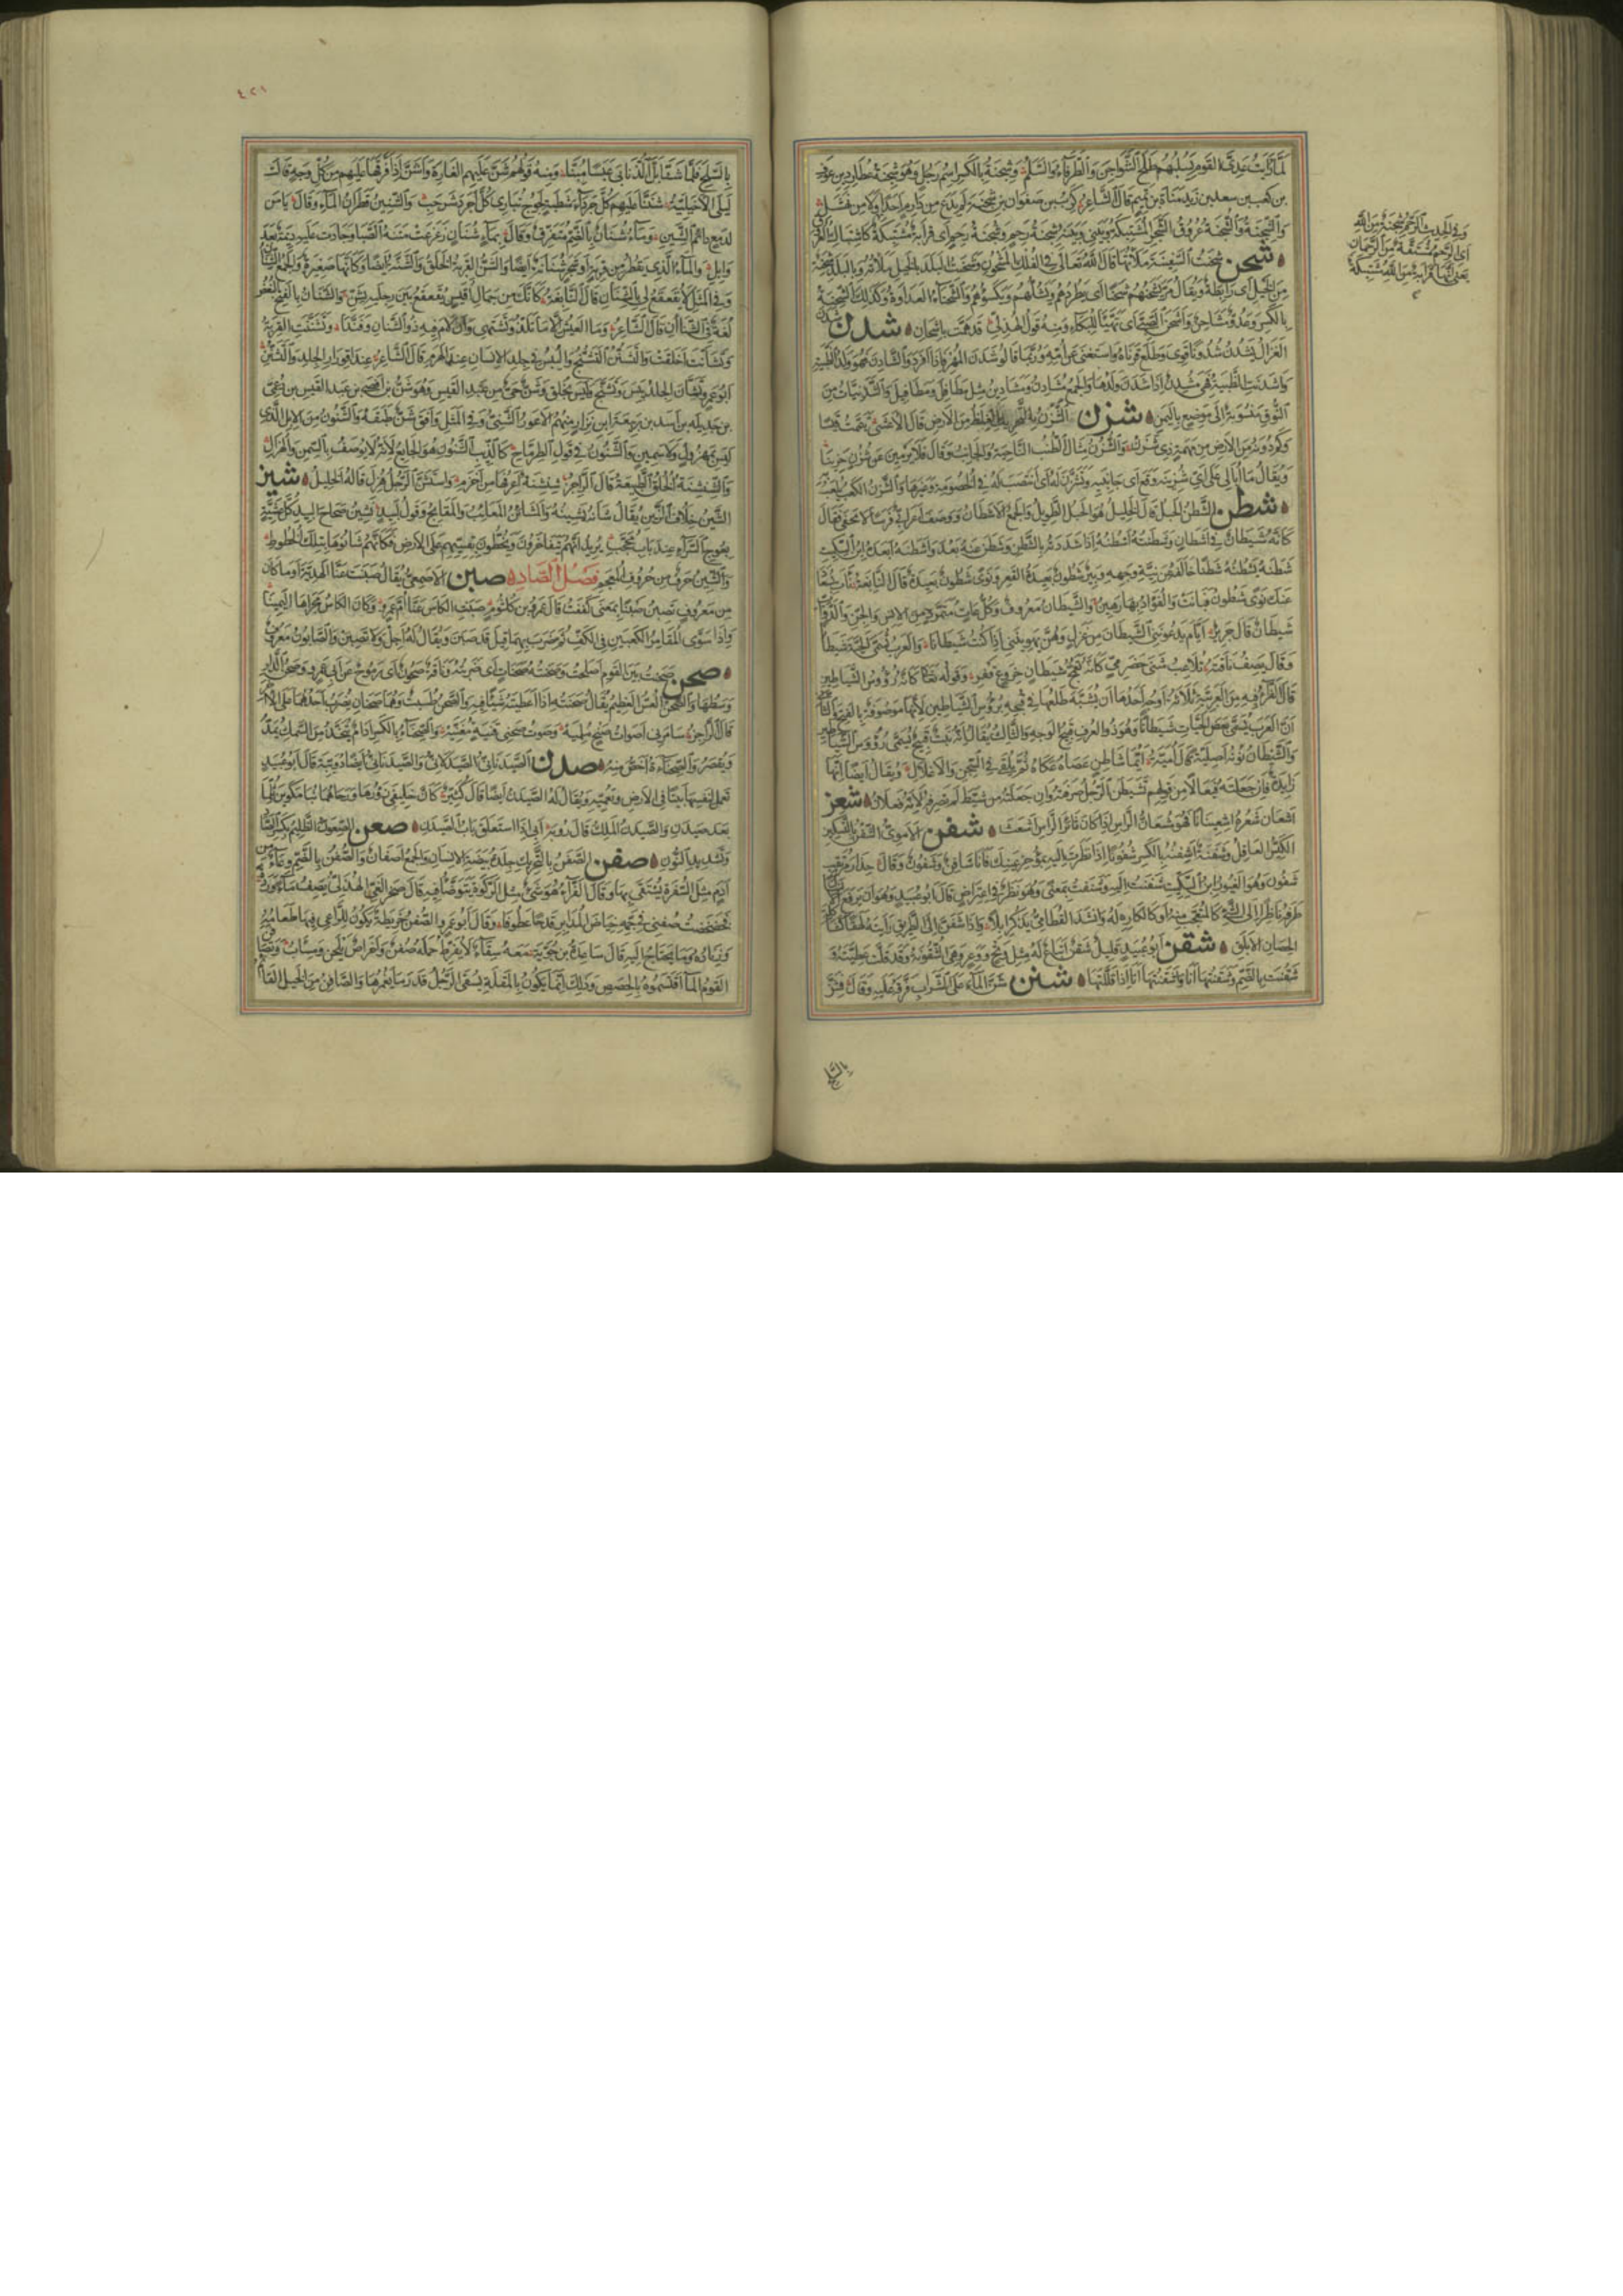 لما رأيت عدي القوم يسلبهم طلح الشواجن والطرفاء والسلم وشجنة بالكسر اسم رجل وهو شجنة بن عطارد بن عوف
بن كعب بن سعد بن زيد مناة بن تميم قال الشاعر كرب بن صفوان بن شجنة لم يدع من دارم احدا ولا من نهشل
والشجنة والشجنة عروق الشجر المشتبكة وبيني وبينه شجنة رحم وشجنة رحم اي قرابة مشتبكة
شحن شحنت السفينة ملأتها قال الله تعالى في الفلك المشحون وشحنت البلد بالخيل ملأته وبالبلد شحنة
من الخيل اي رابطة ويقال مر يشحنهم شحنا اي يطردهم ويشلهم ويكسؤهم والشحناء العداوة وكذلك الشحنة
بالكسر وعدو مشاحن واشحن الصبي اي تهيأ للبكاء ومنه قول الهذلي قد همت باشحان شدن
الغزال يشدن شدونا قوي وطلع قرناه واستغنى عن امه وربما قالوا شدن المهر فاذا افردوا الشادن فهو ولد الظبية
واشدنت الظبية فهي مشدن اذا شدن ولدها والجمع مشادن ومشادين مثل مطافل ومطافيل والشدنيات من
النوق منسوبة الى موضع باليمن شزن الشزن بالتحريك الغليظ من الارض قال الاعشى تيممت قيسا
وكم دونه من الارض من مهمه ذي شزن والشزن مثال الطنب الناحية والجانب وقال فلا يرمين عن شزن حزينا
ويقال ما ابالي على اي شزنيه وقع اي جانبيه وتشزن له اي انتصب له في الخصومة وغيرها والشزن الكعب يلعب به
شطن الشطن الحبل قال الخليل هو الحبل الطويل والجمع الاشطان ووصف اعرابي فرسا لا يحفى فقال
كانه شيطان في اشطان وشطنته اشطنه اذا شددته بالشطن وشطن عنه بعد واشطنه ابعده ابن السكيت
شطنه يشطنه شطنا خالفه عن نية وجهه وبئر شطون بعيدة القعر ونوى شطون بعيدة قال النابغة نأت بسعاد
عنك نوى شطون فبانت والفؤاد بها رهين والشيطان معروف وكل عات متمرد من الانس والجن والدواب
شيطان قال جرير ايام يدعونني الشيطان من غزل وهن يهوينني اذ كنت شيطانا والعرب تسمي الحية شيطانا
وقال يصف ناقته تلاعب مثنى حضرمي كانه تعمج شيطان بذي خروع قفر وقوله تعالى كانه رؤوس الشياطين
قال الفراء فيه من العربية ثلاثة اوجه احدها ان يشبه طلعها في قبحه برؤس الشياطين لانها موصوفة بالقبح والثاني
ان العرب تسمي بعض الحيات شيطانا وهو ذو العرف قبيح الوجه والثالث يقال انه نبت قبيح يسمى رؤوس الشياطين
والشيطان نونه اصلية قال امية ايما شاطن عصاه عكاه ثم يلقى في السجن والاغلال ويقال ايضا انها
زايدة فان جعلته فيعالا من قولهم تشيطن الرجل صرفته وان جعلته من شيط لم تصرفه لانه فعلان شعن
اشعان شعره اشعينانا فهو مشعان الراس اذا كان ثائر الراس اشعث شفن الاموي الشفن بالتسكين
الكيس العاقل وشفنته اشفنه بالكسر شفونا اذا نظرت اليه بمؤخر عينك فانا شافن وشفون وقال حذار مرتقب
شفون وهو الغيور ابن السكيت شفنت اليه وشنفت بمعنى وهو نظر في اعتراض قال ابو عبيد وهو ان يرفع
طرفه ناظرا الى الشيء كالمتعجب منه او كالكاره له وانشد القطامي يذكر ابلا واذا شفن الى الطريق رأينه لهقا كشاكلة
الحصان الابلق شقن ابو عبيد قليل شقن اتباع له مثل وتح ووعر وهي الشقونة وقد قلت عطيته و
شقنت بالضم وشقنتها انا واشقنتها انا اذا قللتها شنن شن الماء على الشراب فرقه عليه وقال فشن
بالسلح
وفي الحديث الرحم شجنة من الله
اي الرحم مشتقة من الرحمان
يعني انها قرابة من الله مشتبكة
٤٢١
بالسلح فلما شقا بل الذنابى عبسا مبنا ومنه قولهم شن عليهم الغارة واشن اذا فرقها عليهم من كل وجه قالت
ليلى الاخيلية شننا عليهم كل جرداء شطبة لجوج تباري كل اجرد شرجب والشنين قطران الماء وقال يا من
لدمع دائم الشنين وماء شنان بالضم متفرق وقال بماء شنان زعزعت متنه الصبا وجادت عليه ديمة بعد
وابل والماء الذي يقطر من قربة او شجرة شنانة ايضا والشن القربة الخلق والشنة ايضا وكانها صغيرة والجمع الشنان
وفي المثل لا يقعقع لي بالشنان قال النابغة كانك من جمال بني اقيش يقعقع بين رجليه بشن والشنان بالفتح البغض
لغة في الشنآن قال الشاعر وما العيش الا ما تلذ وتشتهي وان لام فيه ذو الشنان وفندا وتشننت القربة
وتشانت اخلقت والتشنن التشنج واليبس في جلد الانسان عند الهرم قال الشاعر عند اقورار الجلد والتشنن
ابو عمرو تشان الجلد يبس وتشنج وليس بخلق وشن حي من عبد القيس وهو شن بن افصى بن عبد القيس بن دعمي
بن جديلة بن اسد بن ربيعة ابن نزار منهم الاعور الشني وفي المثل وافق شن طبقة والشنون من الابل الذي
ليس بمهزول ولا سمين والشنون في قول الطرماح كالذئب الشنون هو الجائع لانه لا يوصف بالسمن والهزال
والشنشنة الخلق والطبيعة قال الراجز شنشنة اعرفها من اخزم واستشن الرجل هزل قاله الخليل شين
الشين خلاف الزين يقال شانه يشينه والمشاين المعايب والمقابح وقول لبيد نشين صحاح البيد كل عشية
بعوج السراء عند باب محجب يريد انهم يتفاخرون ويخطون بقسيهم على الارض فكانهم شانوها بتلك الخطوط
والشين حرف من حروف المعجم فصل الصاد صبن الاصمعي يقال صبنت عنا الهدية او ما كان
من معروف تصبن صبنا بمعنى كففت قال عمرو بن كلثوم صبنت الكاس عنا ام عمرو وكان الكاس مجراها اليمينا
واذا سوى المقامر الكعبين في الكف ثم ضرب بهما قيل قد صبن ويقال له اجل ولا تصبن والصابون معروف
صحن صحنت بين القوم اصلحت وصحنته صحنات اي ضربته وناقة صحون اي رموح عن ابي عمرو وصحن الدار
وسطها والصحن العس العظيم يقال صحنته اذا اعطيته شيئا فيه والصحن طسيت وهما صحنان يضرب احدهما على الآخر
قال الراجز سامرني اصوات صنج ملهية وصوت صحني قينة مغنية والصحناء بالكسر ادام يتخذ من السمك يمد
ويقصر والصحناءة اخص منه صدن الصيدناني الصيدلاني والصيدناني ايضا دويبة قال ابو عبيد
تعمل لنفسها بيتا في الارض وتعميه ويقال له الصيدن ايضا قال كثير كان خليفي زورها ورحاهما بنا مكوين ثلما
بعد صيدن والصيدن الملك قال رؤبة اني اذا استغلق باب الصيدن صعن الصعون الظليم بكسر الصاد
وتشديد النون صفن الصفن بالتحريك جلدة بيضة الانسان والجمع اصفان والصفن بالضم وعاء من
ادم مثل السفرة يستقى بها وقال الفراء هو شيء مثل الركوة يتوضأ فيه قال صخر الغي الهذلي يصف ماء ورده
فخضخضت صفني في جمه خياض المدابر قدحا عطوفا وقال ابو عمرو الصفن خريطة تكون للراعي فيها طعامه
وزناده وما يحتاج اليه قال ساعدة بن جؤية معه سقاء لا يفرط حمله صفن واخراص يلحن ومساب وتصافن
القوم الماء اقتسموه بالحصص وذلك انما يكون بالمقلة يسقى الرجل قدر ما يغمرها والصافن من الخيل القائم